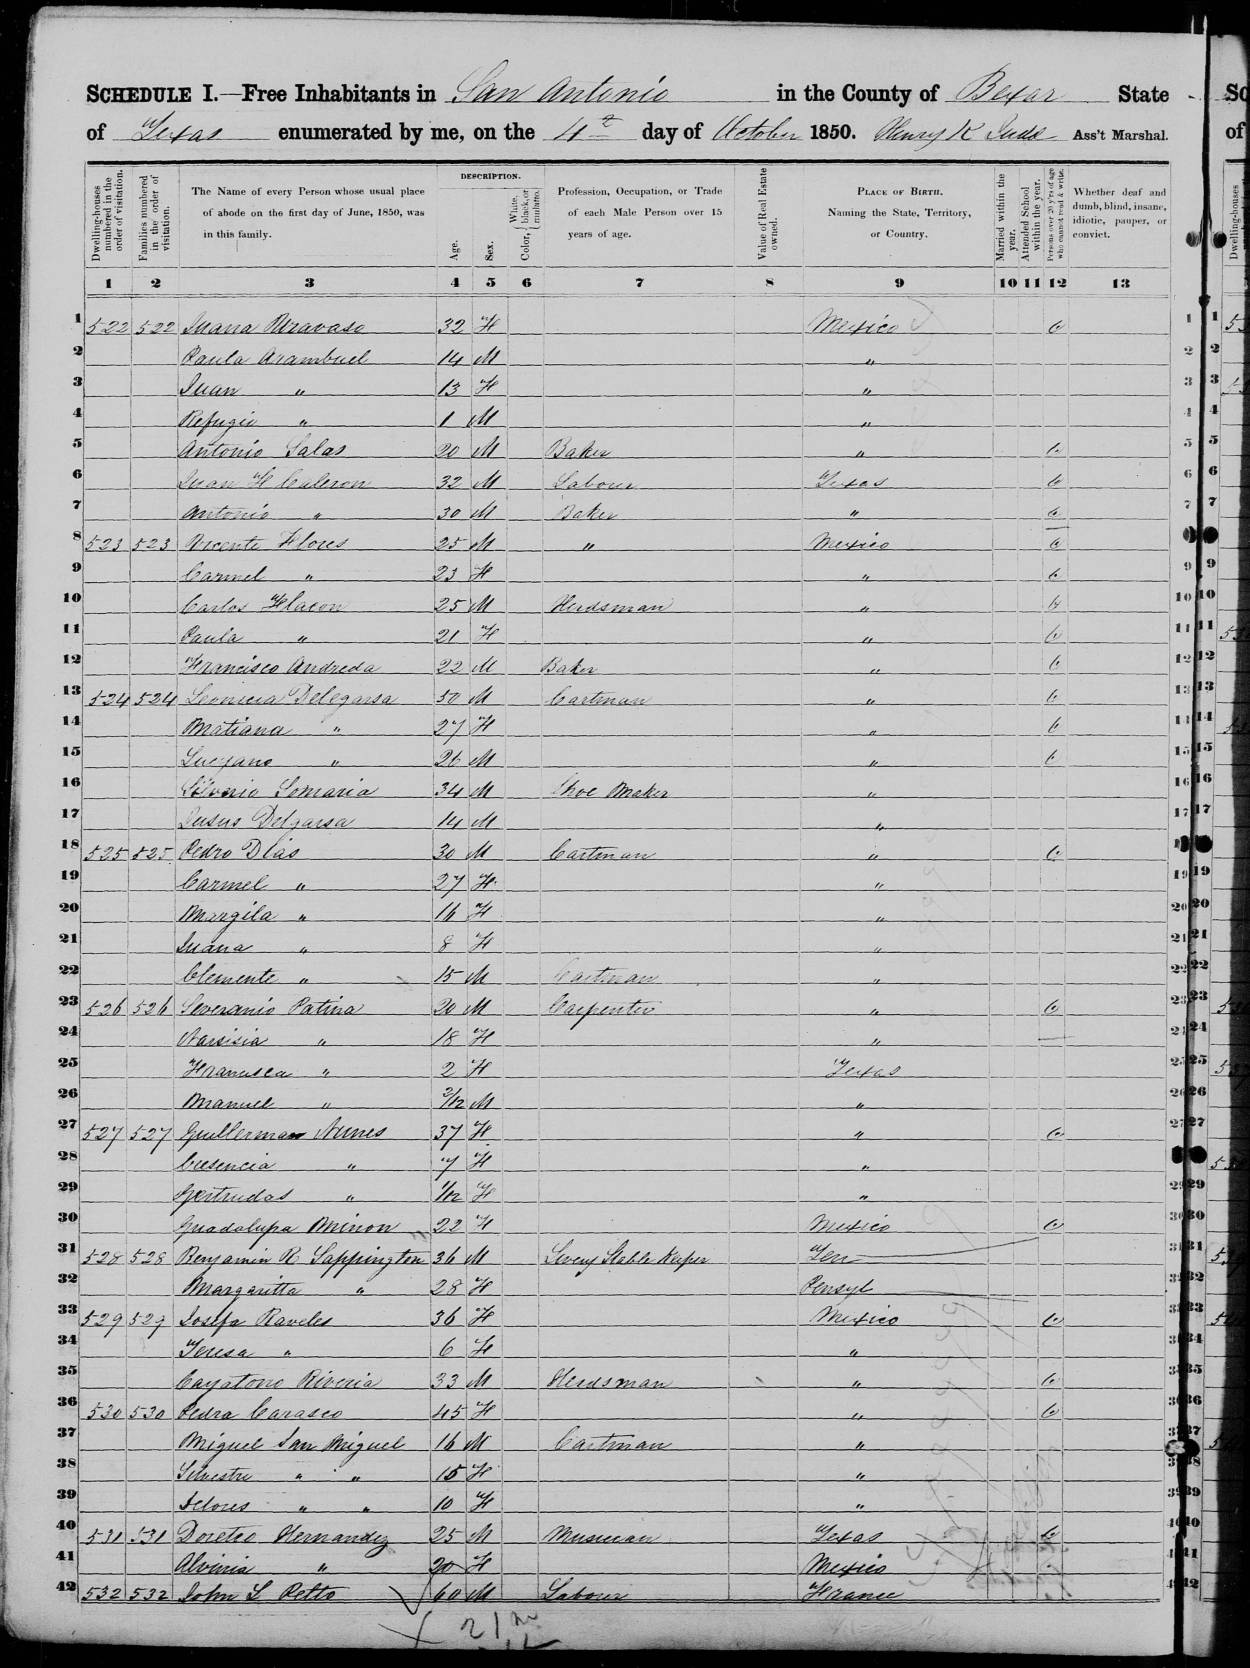 SCHEDULE I.—Free Inhabitants in San Antonio in the County of Bexar State
of Texas enumerated by me, on the 4th day of October 1850. Henry K Judd Ass't Marshal.
Dwelling-houses numbered in the order of visitation.
Families numbered in the order of visitation.
The Name of every Person whose usual place of abode on the first day of June, 1850, was in this family.
DESCRIPTION.
Age.
Sex.
Color, White, black, or mulatto.
Profession, Occupation, or Trade of each Male Person over 15 years of age.
Value of Real Estate owned.
PLACE OF BIRTH. Naming the State, Territory, or Country.
Married within the year.
Attended School within the year.
Persons over 20 y'rs of age who cannot read & write.
Whether deaf and dumb, blind, insane, idiotic, pauper, or convict.
1 2 3 4 5 6 7 8 9 10 11 12 13
1 522 522 Juana 32 F Mexico 1
2 Paula Arambuel 14 M " 2
3 Juan " 13 F " 3
4 Refugio " 1 M " 4
5 Antonio Salas 20 M Baker " 5
6 Juan F Caleron 32 M Labour Texas 6
7 Antonio " 30 M Baker " 7
8 523 523 Vicente Flores 25 M " Mexico
9 Carmel " 23 F " 9
10 Carlos Flacon 25 M Herdsman " 10
11 Paula " 21 F " 11
12 Francisco Andreda 22 M Baker " 12
13 524 524 Leonicia Delegarsa 50 M Cartman " 13
14 Matiana " 27 F " 14
15 Lucyano " 26 M " 15
16 Silvonio Somaria 34 M Shoe Maker " 16
17 Jusus Delgarsa 14 M " 17
18 525 525 Pedro Dias 30 M Cartman "
19 Carmel " 27 F " 19
20 Margila " 16 F " 20
21 Juana " 8 F " 21
22 Clemente " 15 M Cartman " 22
23 526 526 Severanio Patina 20 M Carpenter " 23
24 Narsisia " 18 F " 24
25 Francisca " 2 F Texas 25
26 Manuel " 2/12 M " 26
27 527 527 Guillerma Nunes 37 F " 27
28 Cresencia " 7 F "
29 Gertrudas " 1/12 F " 29
30 Guadalupa Minon 22 F Mexico 30
31 528 528 Benjamin R Sappington 36 M Livery Stable Keeper Ten 31
32 Margaritta " 28 F Pensyl 32
33 529 529 Josefa Raveles 36 F Mexico 33
34 Teresa " 6 F " 34
35 Cayatono Riveria 33 M Herdsman " 35
36 530 530 Pedra Carasco 45 F " 36
37 Miguel San Miguel 16 M Cartman " 37
38 Silvestre " " 15 F " 38
39 Delores " " 10 F " 39
40 531 531 Doreteo Hernandez 25 M Musician Texas 40
41 Alvinia " 20 F Mexico 41
42 532 532 John L Petto 60 M Labour France 42
21 m